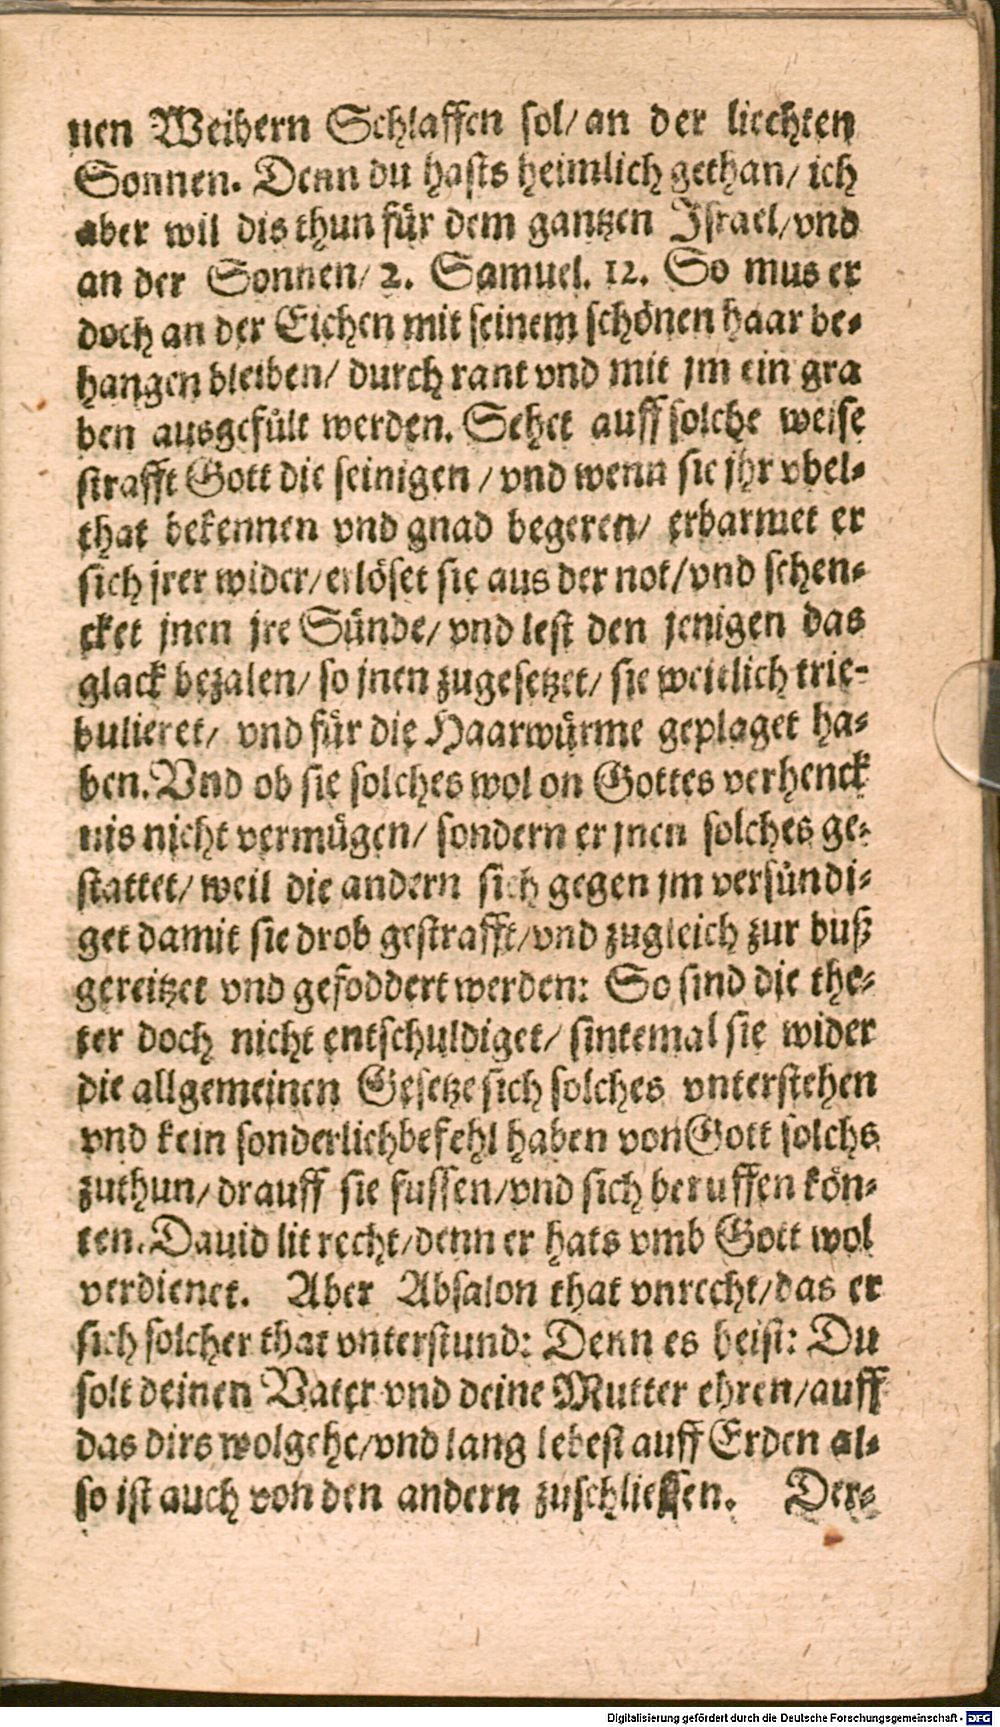 nen Weibern Schlaffen sol/ an der liechten
Sonnen. Denn du hasts heimlich gethan/ ich
aber wil dis thun für dem gantzen Israel/ vnd
an der Sonnen/ 2. Samuel. 12. So mus er
doch an der Eichen mit seinem schönen haar be-
hangen bleiben/ durch rant vnd mit jm ein gra
ben ausgefült werden. Sehet auff solche weise
strafft Gott die seinigen / vnd wenn sie jhr vbel-
that bekennen vnd gnad begeren/ erbarmet er
sich jrer wider/ erlöset sie aus der not/ vnd schen-
cket jnen jre Sünde/ vnd lest den jenigen das
glack bezalen/ so jnen zugesetzet/ sie weidlich trie-
bulieret/ vnd für die Haarwürme geplaget ha-
ben. Vnd ob sie solches wol on Gottes verhenck
nis nicht vermügen/ sondern er jnen solches ge-
stattet/ weil die andern sich gegen jm versündi-
get damit sie drob gestrafft/ vnd zugleich zur buß
gereitzet vnd gefoddert werden: So sind die the-
ter doch nicht entschuldiget/ sintemal sie wider
die allgemeinen Gesetze sich solches vnterstehen
vnd kein sonderlichbefehl haben von Gott solchs
zuthun/ drauff sie fussen/ vnd sich beruffen kön-
ten. Dauid lit recht/ denn er hats vmb Gott wol
verdienet. Aber Absalon that vnrecht/ das er
sich solcher that vnterstund: Denn es heist: Du
solt deinen Vater vnd deine Mutter ehren/ auff
das dirs wolgehe/ vnd lang lebest auff Erden al-
so ist auch von den andern zuschliessen. Der-
Digitalisierung gefördert durch die Deutsche Forschungsgemeinschaft - DFG